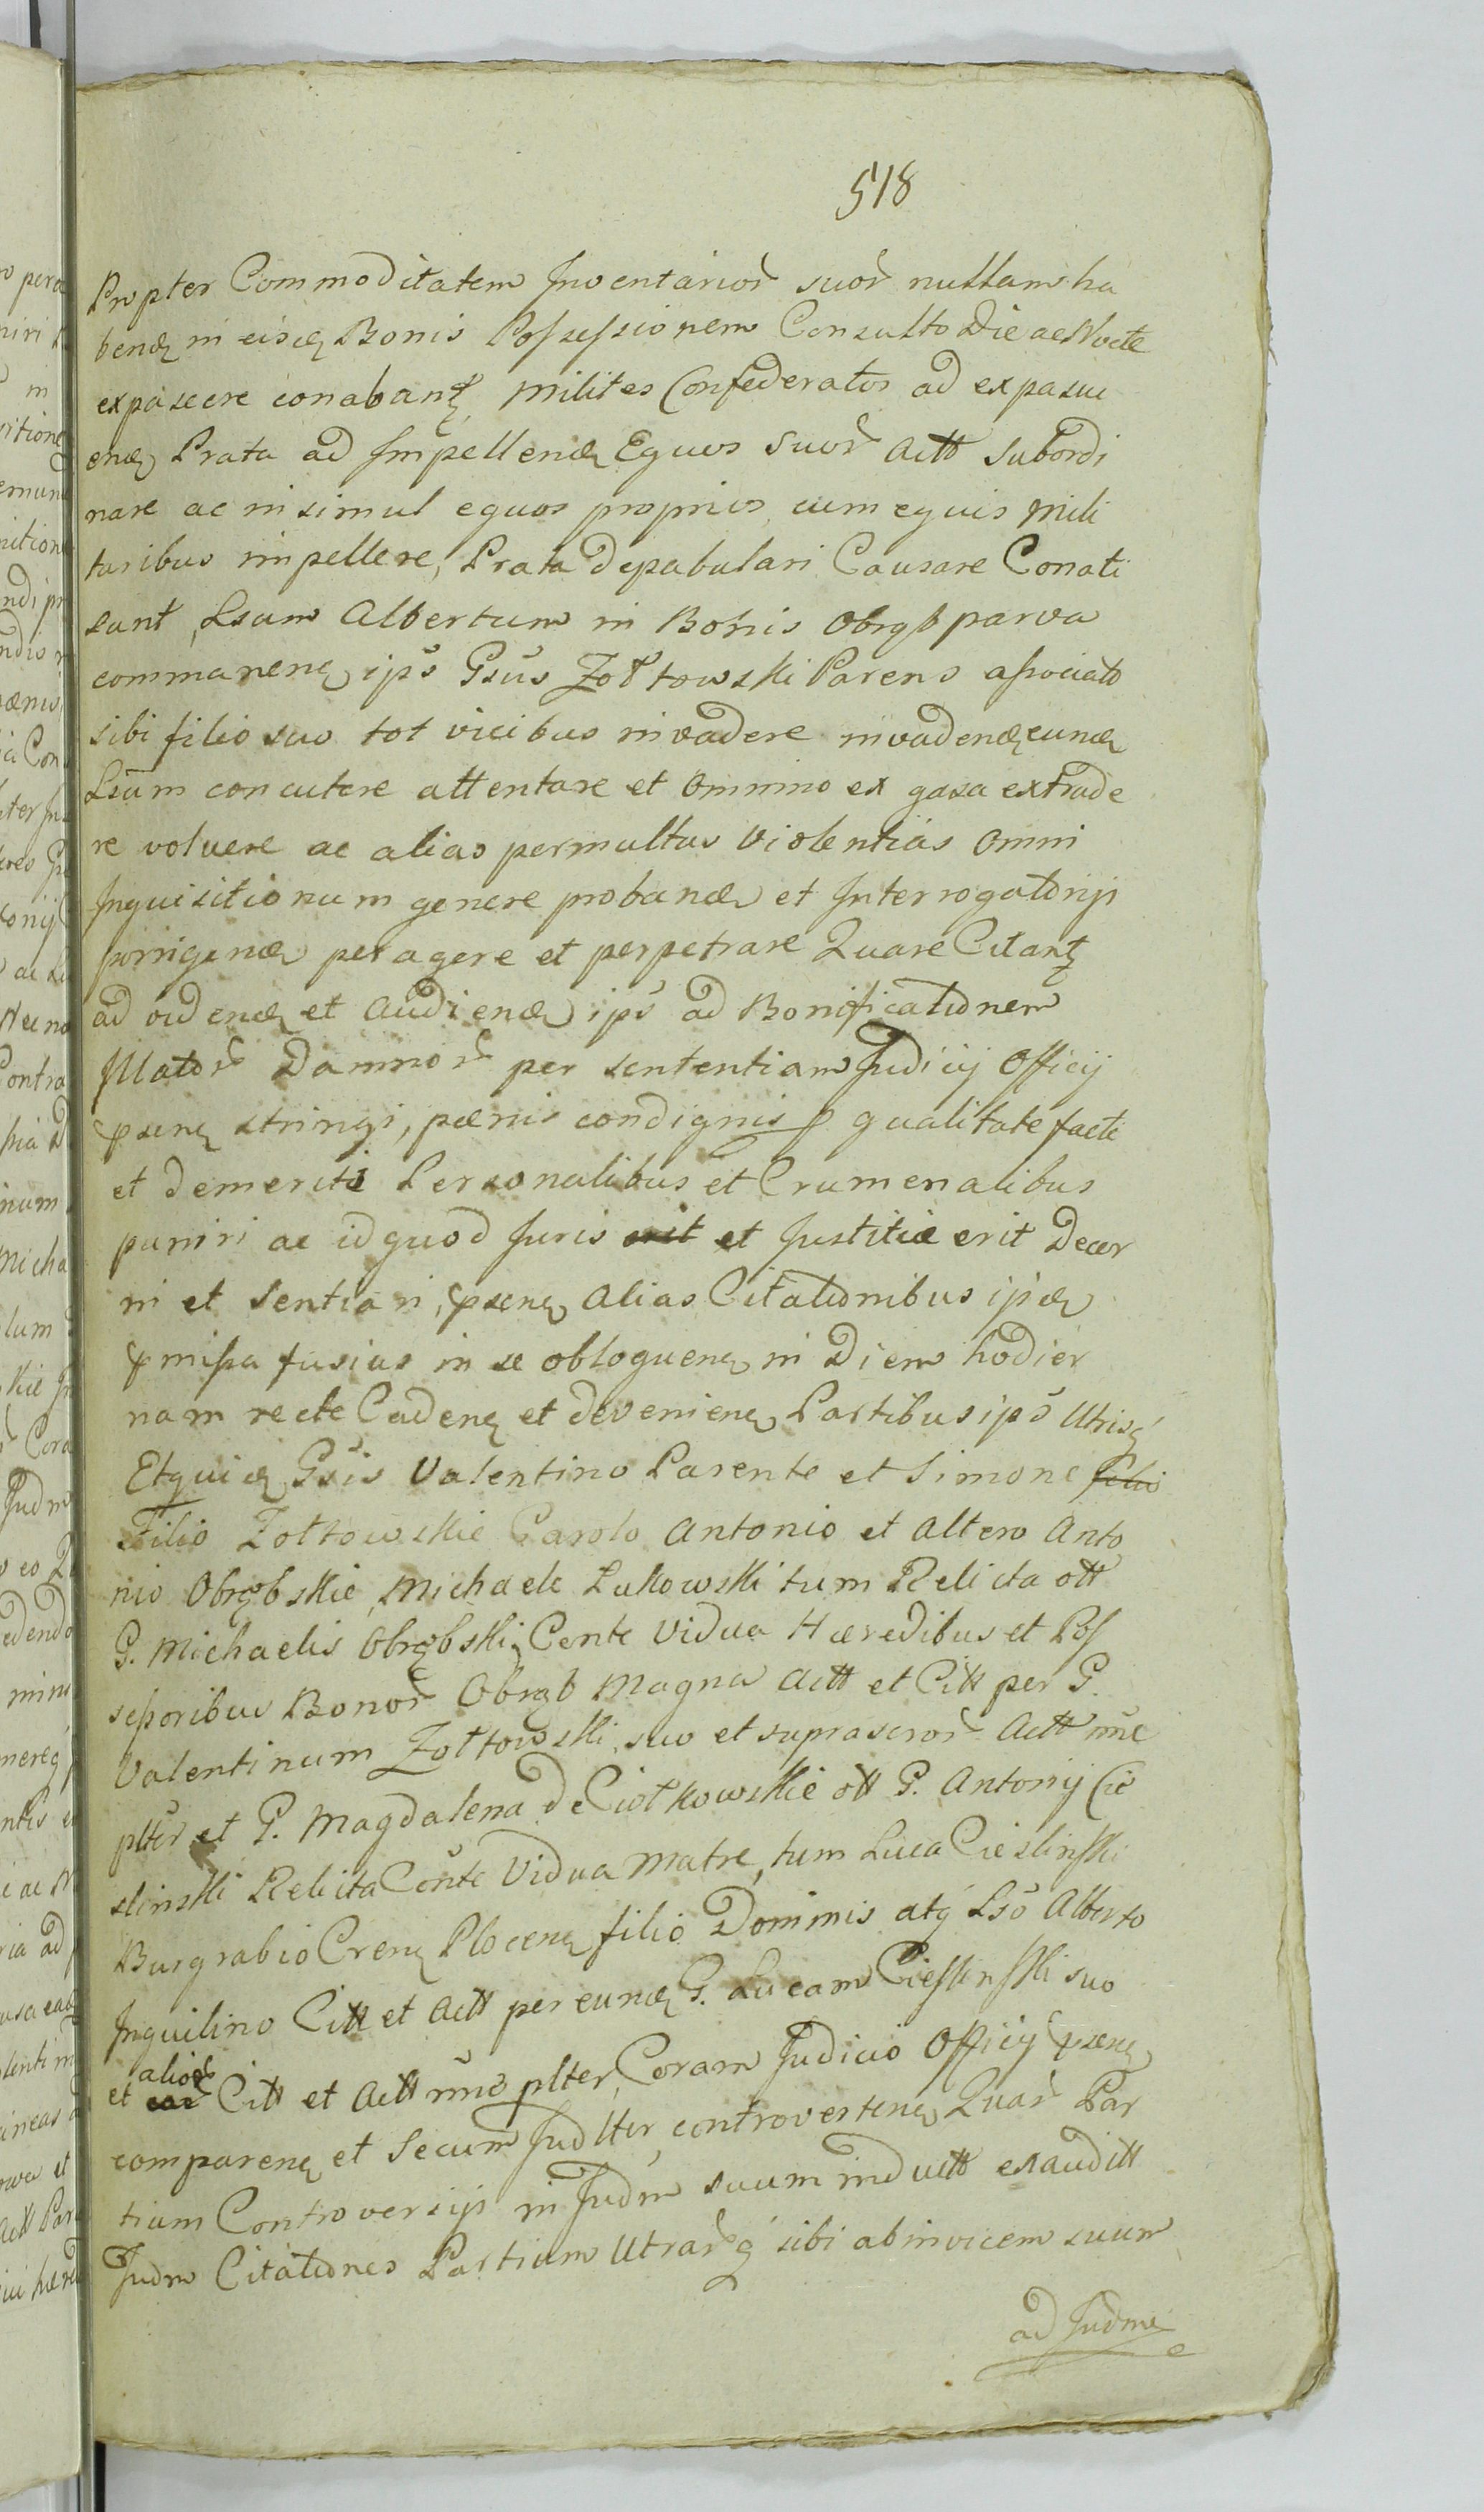 518
Propter Commoditatem Inventarior suor nullam ha
benđ in eisđ Bonis Possessionem Consulto Die ac Nocte
expascere conabant, Milites Confederatos ad expascu
enđ Prata ad Impellenđ Equos suor Actt subordi
nare ac insimul equos proprios cum equis Mili
taribus impellere, Prata depabulari Causare Conati
sunt, Lsum Albertum in Bonis Obręb parva
commanenę ips Gsus Zołtowski Parens associato
sibi filio suo tot vicibus invadere invadenđ eunđ
Lsum concutere attentare et omnino ex gaza extrade
re voluere ac alias permultas violentias omni
Inquisitionum genere probanđ et Interrogatorijs
porrigenđ peragere et perpetrare Quare Citant
ad videnđ et audienđ ips ad Bonificationem
Illator Damnor per sententiam Judicij Officij
psenę stringi, pænis condignis p qualitate facti
et demeriti Personalibus et Crumenalibus
puniri ac id quod Juris erit et Justitiæ erit Decer
ni et sentiari, psenę alias Citationibus ipsđ
pmissa fusius in se obloquenę in Diem hodier
nam recte Cadenę et devenienę Partibus ips Utrisq
Etquiđ Gsis Valentino Parente et Simone filio
Filio Zołtowskie Carolo Antonio et altero Anto
nio Obrębskie, Michaele Lukowski tum Relicta ott
G. Michaelis Obrębski Cente Vidua Hæredibus et Pos
sessoribus Bonor Obręb Magna Actt et Citt per G.
Valentinum Zołtowski, suo et suprascror Actt nne
plter et G. Magdalena de Ciołkowskie ott G. Antonij Cie
slinski Relicta Conte Vidua Matre, tum Luca Cieslinski
Burgrabio Crenę Plocenę filio Dominis atq Lso Alberto
Inquilino Citt et Actt per eunđ G. Lucam Cieslinski suo
et ear alior Citt et Actt nne plter, Coram Judicio Officij psenę
comparenę et Secum Judlter controvertenę Quar Par
tium Controversijs in Judm suum inductt exauditt
Judm Citationes Partium Utrarq sibi ab invicem suum
ad Judm